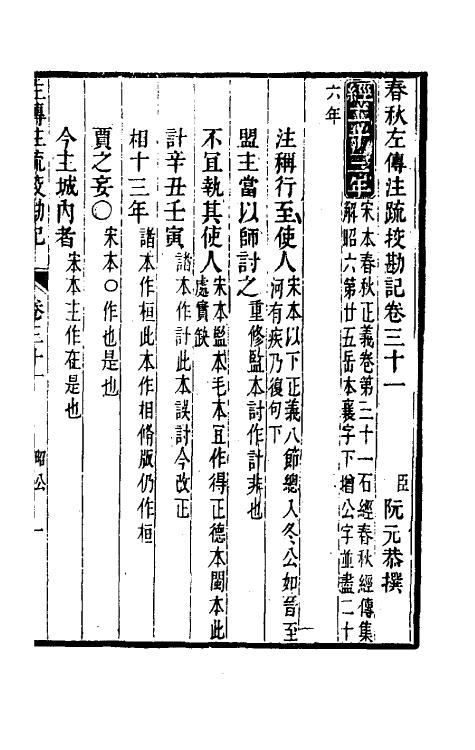 春秋左傳注疏挍勘記卷三十一　臣阮元恭撰
經　三年　宋本春秋正義卷第三十一石經春秋經傳集
解昭六第廿五岳本襄字下增公字並盡二十
六年
注稱行至使人　宋本以下正義八節總入冬公如晉至
河有疾乃復句下
盟主當以師討之　重修監本討作計非也
不宜執其使人　宋本監本毛本宜作得正德本閩本此
處實缺
計辛丑壬寅　諸本作計此本誤討今改正
相十三年　諸本作桓此本作相脩版仍作桓
賈之妄〇　宋本〇作也是也
今主城內者　宋本主作在是也
左傳注疏挍勘記　卷三十一　昭公　一